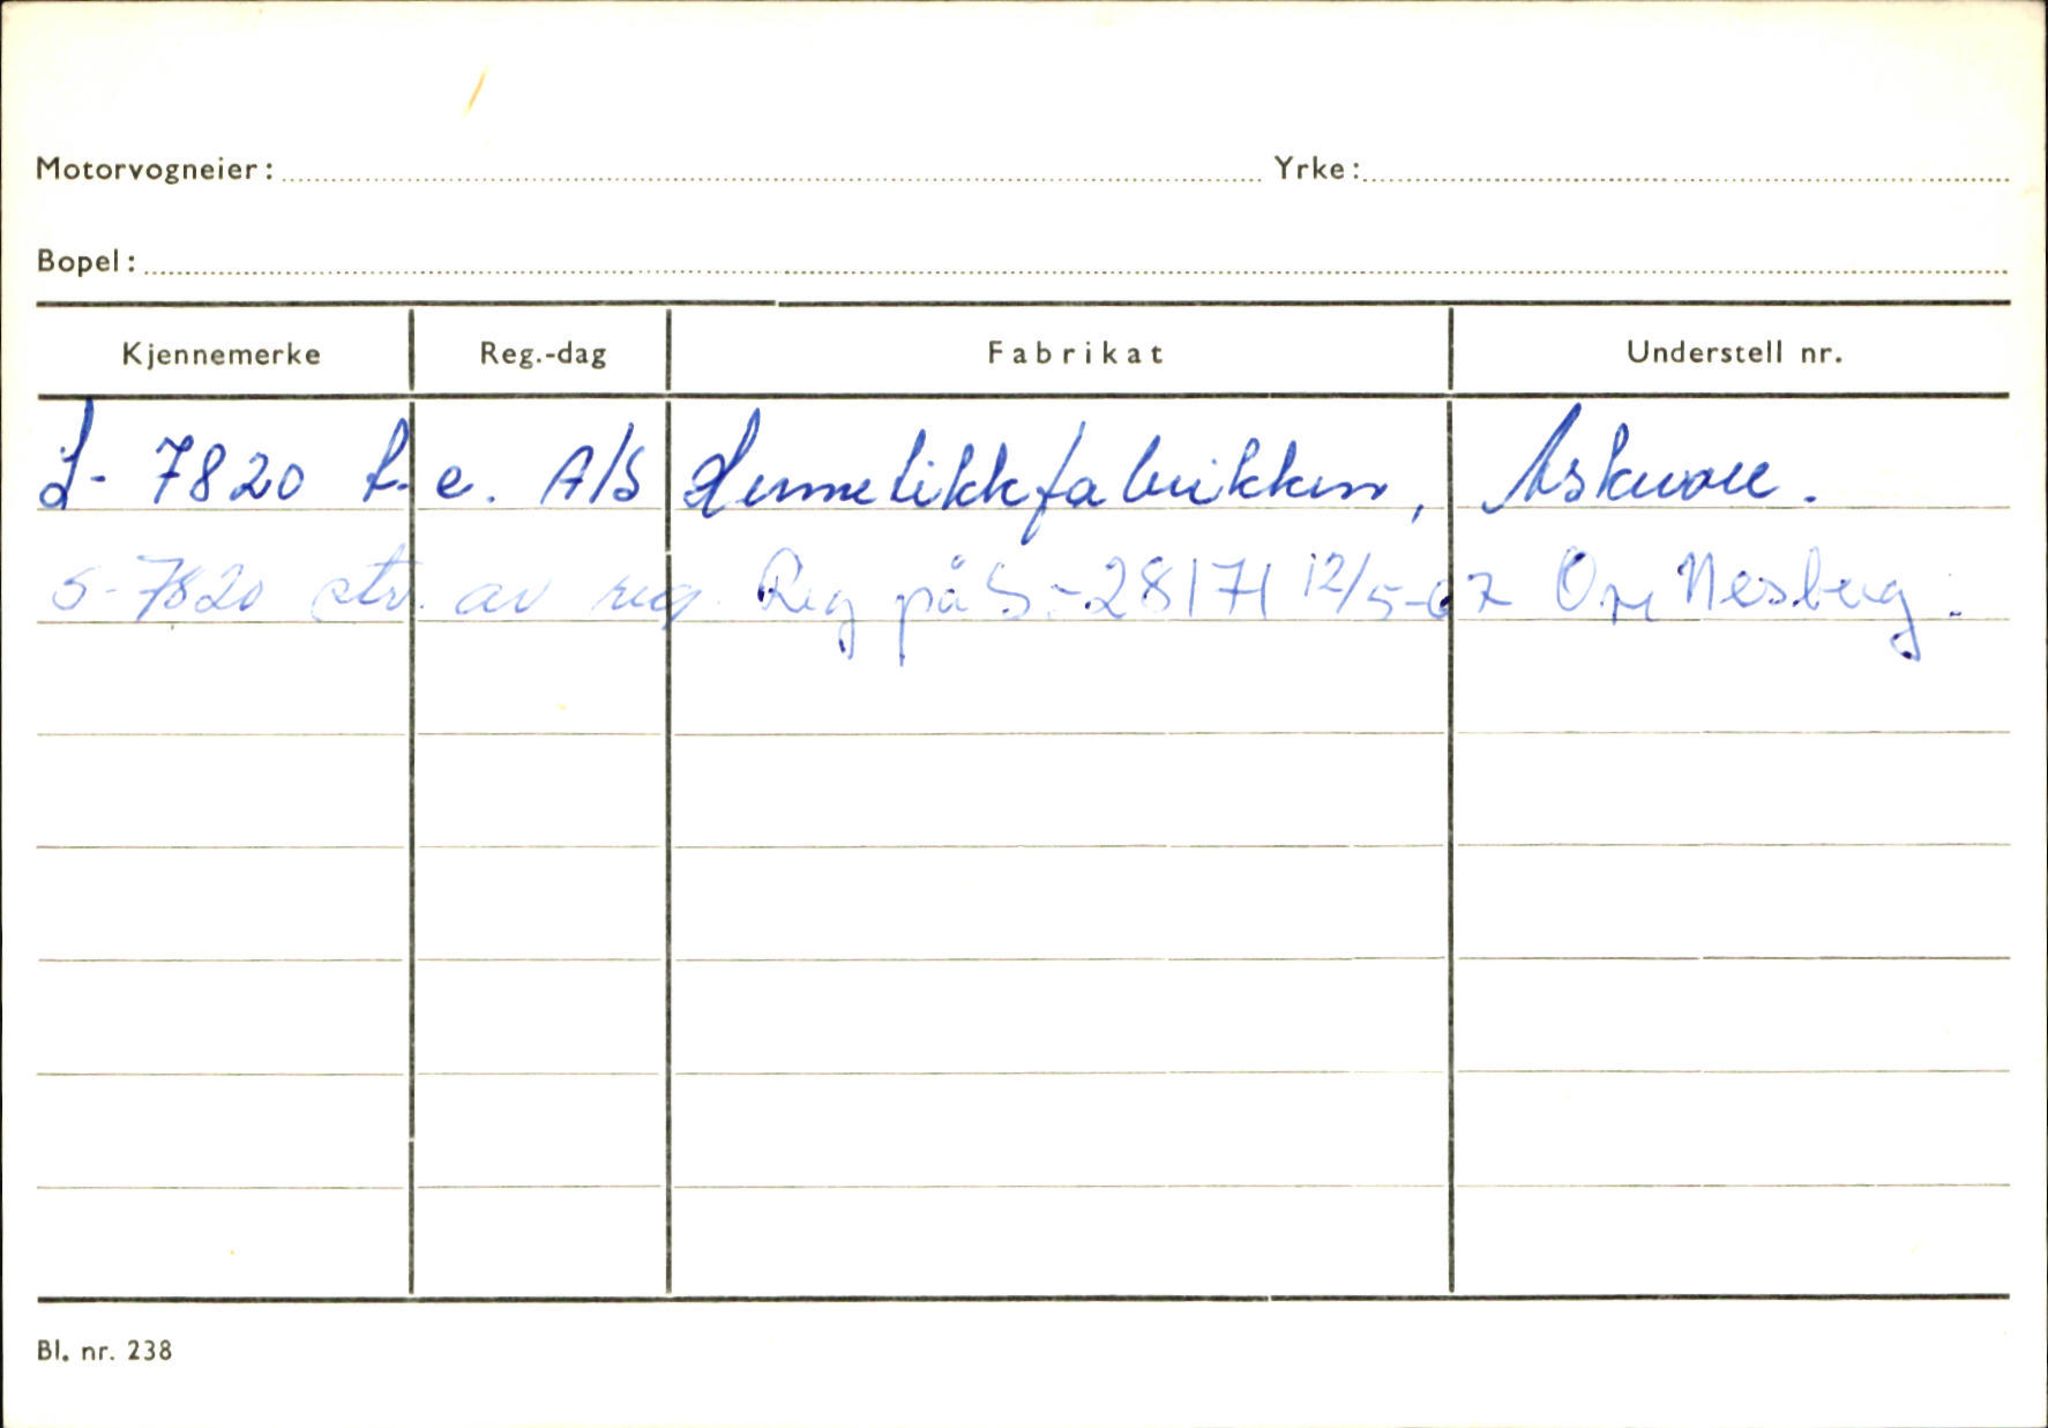 Motorvogneier: Yrke:
Bopel:
Kjennemerke Reg.-dag Fabrikat Understell nr.
S- 7820 t. e. A/S Hermetikkfabrikken, Askvoll.
S-7820 str. av reg. Reg på S-28171 12/5-67 Ove Nesberg.
Bl. nr. 238